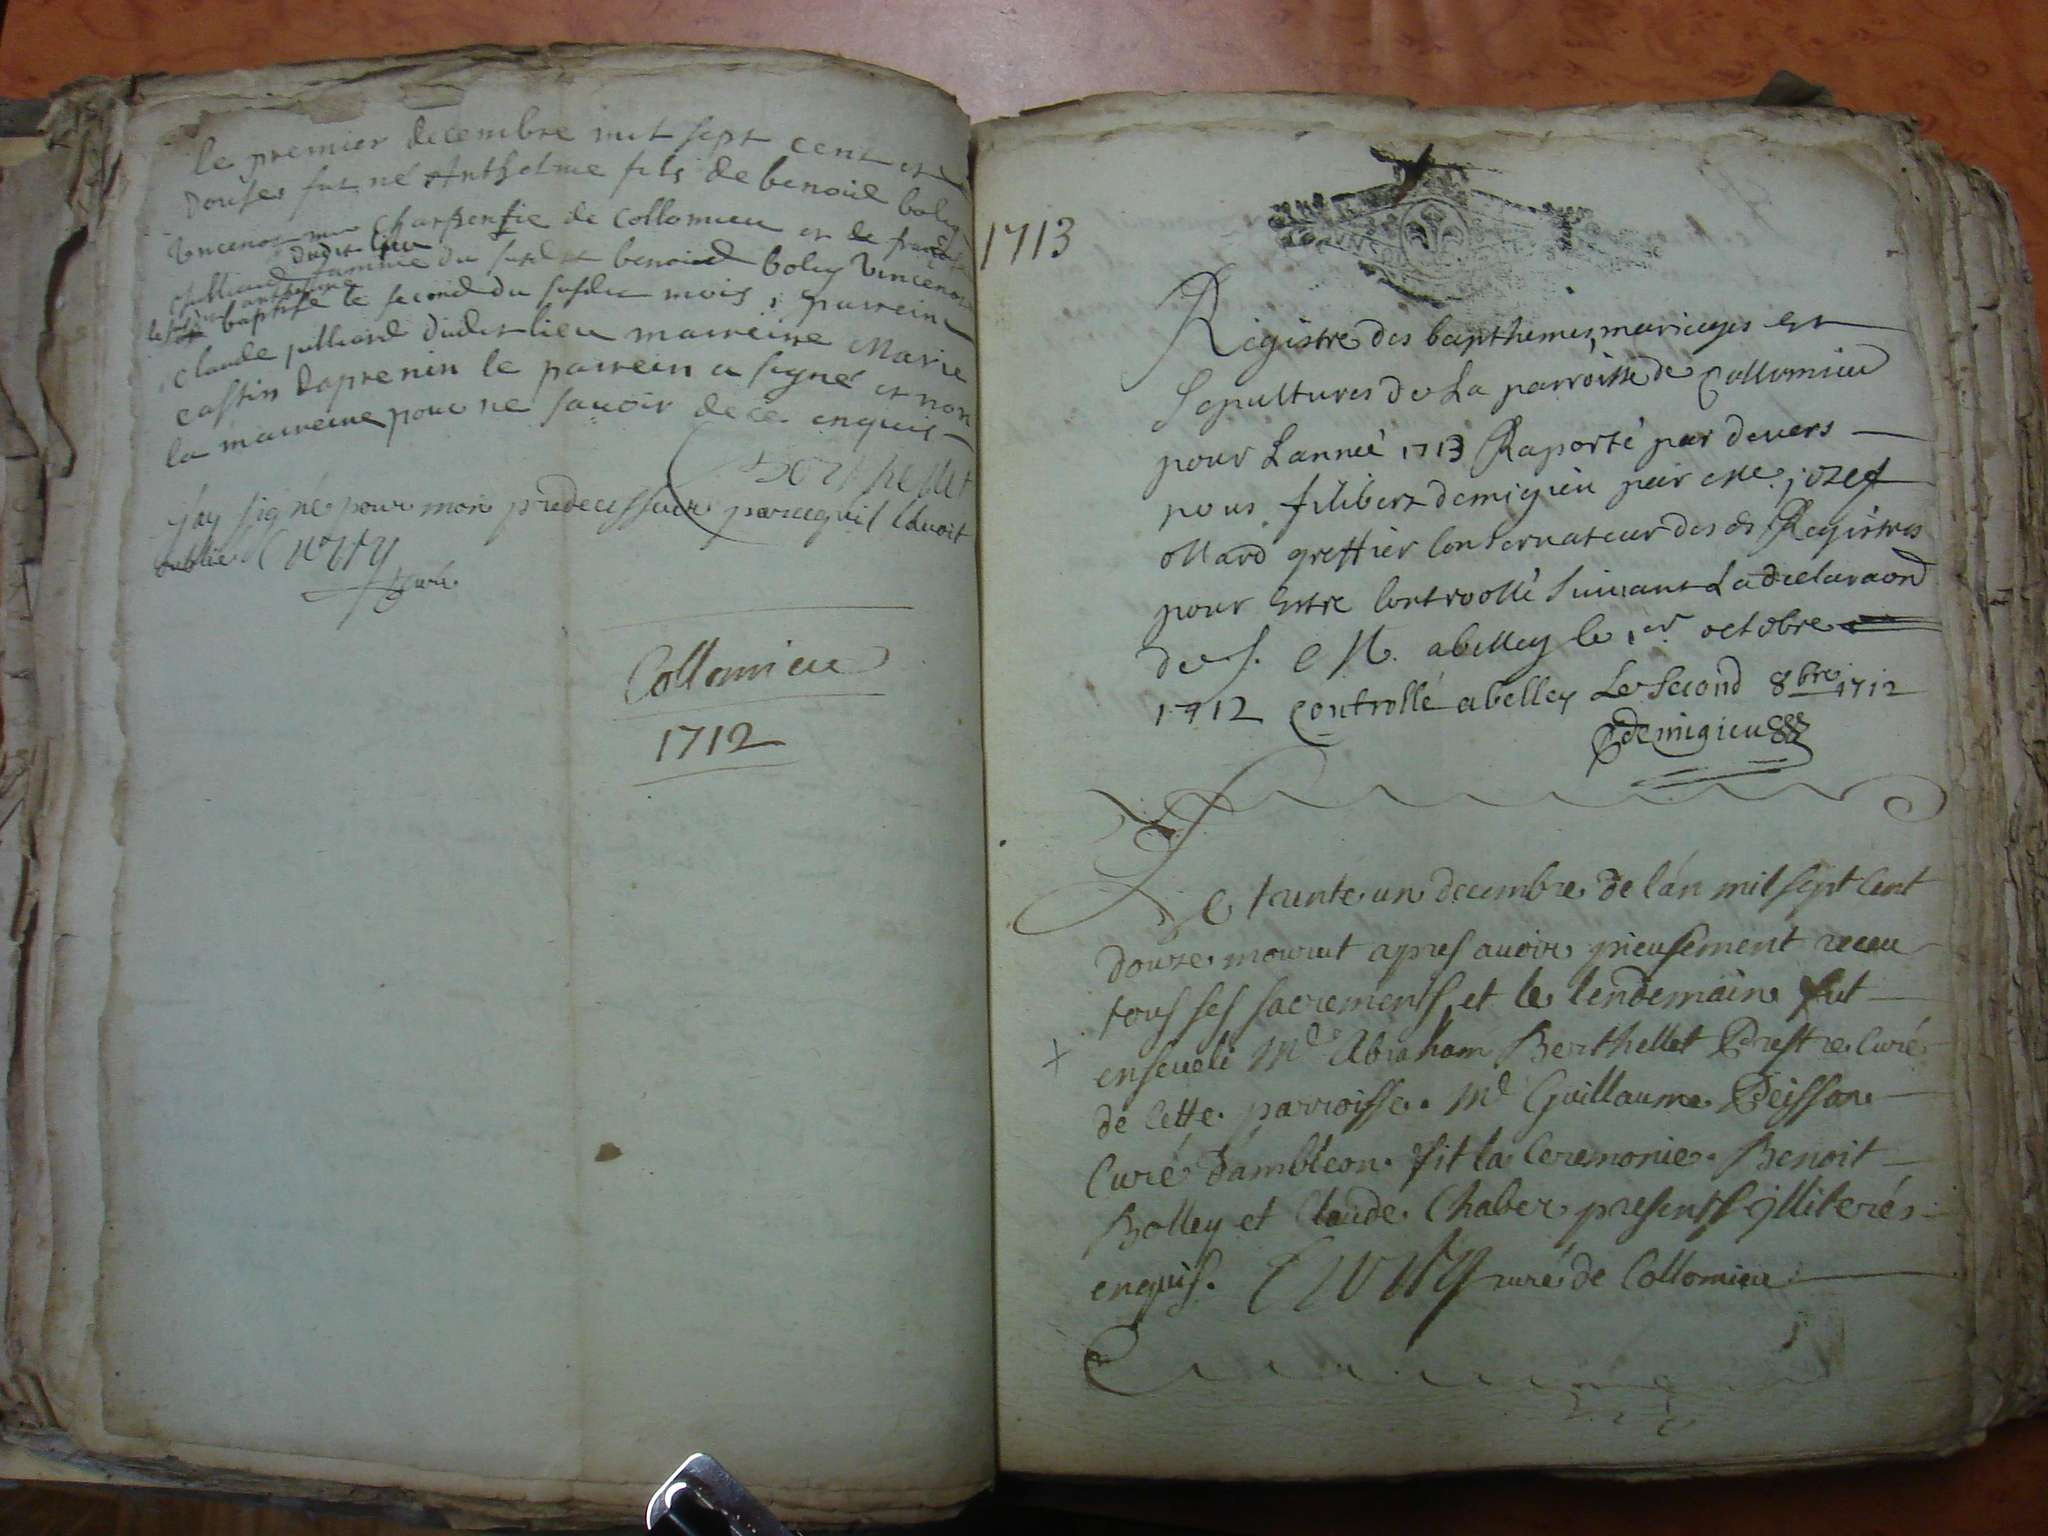 le premier decembre mil sept cent et
douses fut né Anthelme fils de benoid boley
vincenot charpentie de Collomieu et de
julliand femme du susdit benoid boley vincenot
dudit lieu
baptisé le second du susdit mois, parrein
claude julliand dudit lieu marreine Marie
castin daprenin le parrein a signé et non
la marreine pour ne savoir de ce enquis
Berthellet
j'ay signé pour mon predecesseur parcequil lavoit
oublié
curé
Collomieu
1712
1713
Registre des bapthemes, mariages et
Sepultures de La parroisse de Collomieu
pour Lannée 1713 Raporté par devers
nous filibert demigieu par Me. jozef
greffier Conservateur des ds Registres
pour Estre Controollé Suivant La declaraon
de S. M. a belley le 1er octobre
1712 Controllé a belley Le Second 8bre 1712
demigieu
Le trente un decembre de l'an mil sept cent
douze mourut apres avoir pieusement receu
tous ses sacrements et le lendemain fut
enseveli Mr Abraham Berthellet Prestre Curé
de cette parroisse. Mr Guillaume Peisson
Curé d'ambleon fit la Ceremonie. Benoit
Bolley et Claude Chaber presents illiterés
enquis. curé de Collomieu